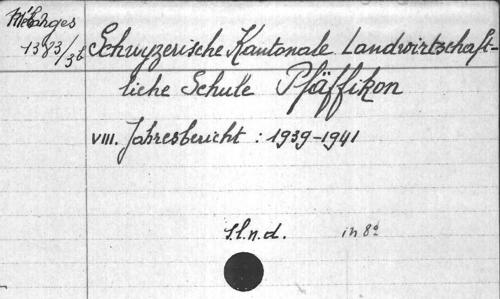 Mélanges
1383/36
Schwyzerische Kantonale Landwirtschaft-
liche Schule Pfäffikon
VIII. Jahresbericht : 1939-1941
s.l.n.d. in 8°